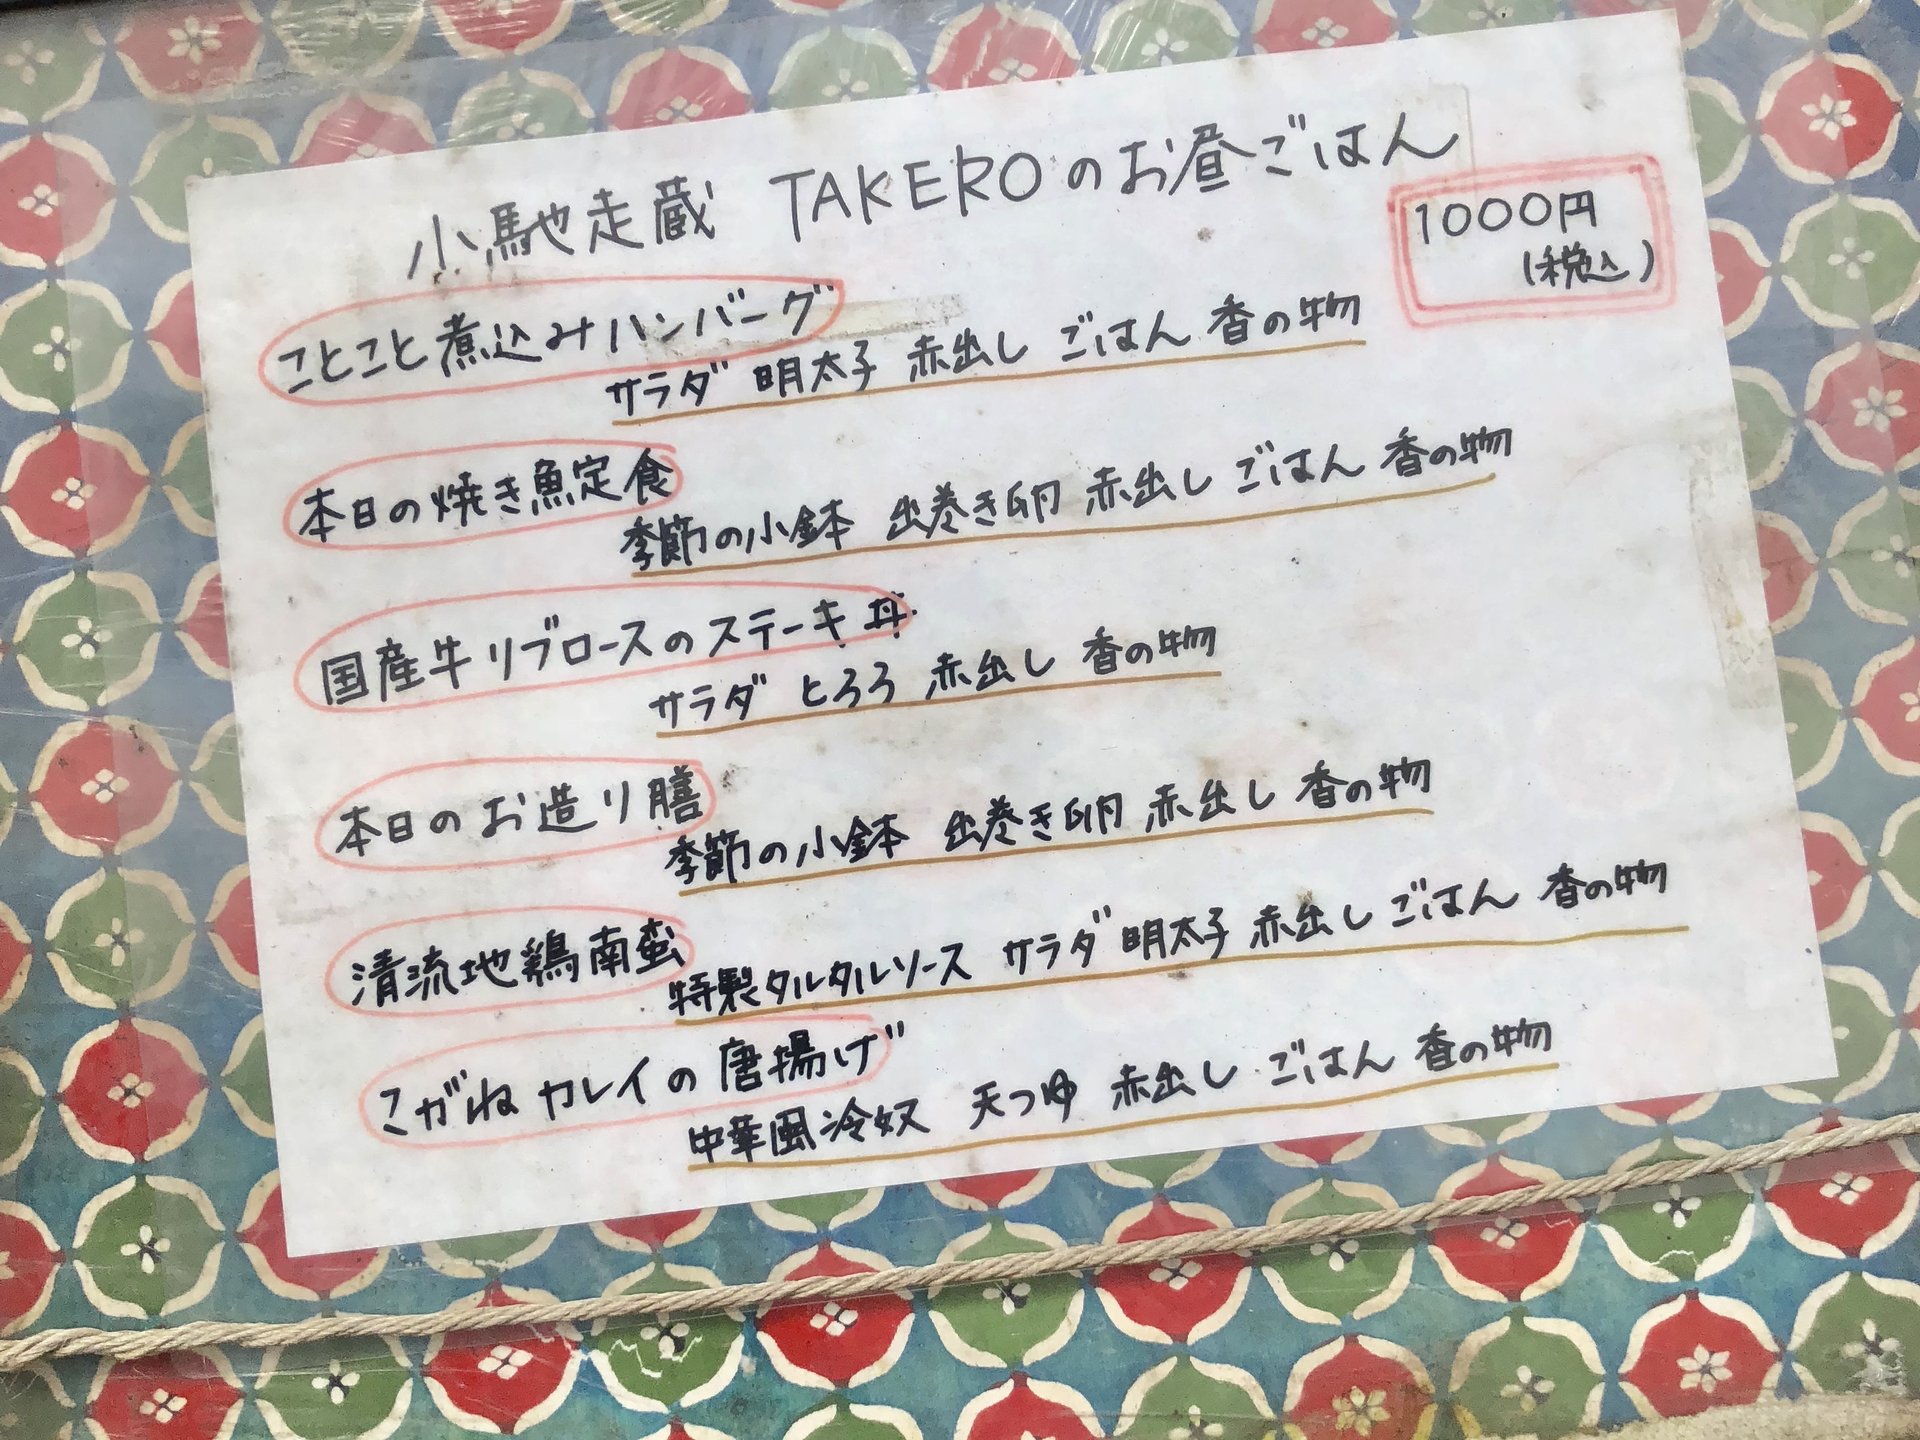 小馳走蔵 TAKEROのお昼ごはん
1000円
(税込)
ことこと煮込みハンバーグ
サラダ 明太子 赤出し ごはん 香の物
本日の焼き魚定食
季節の小鉢 出巻き卵 赤出し ごはん 香の物
国産牛リブロースのステーキ丼
サラダ とろろ 赤出し 香の物
本日のお造り膳
季節の小鉢 出巻き卵 赤出し 香の物
清流地鶏南蛮
特製タルタルソース サラダ 明太子 赤出し ごはん 香の物
こがねカレイの唐揚げ
中華風冷奴 天つゆ 赤出し ごはん 香の物